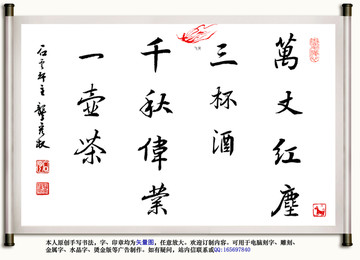 萬丈紅塵
三杯酒
千秋偉業
一壺茶
本人原创手写书法，字、印章均为矢量图，任意放大。欢迎订制内容，可用于电脑刻字、雕刻、
金属字、水晶字、烫金版等广告制作。如有疑问，站内信联系或QQ:165697840